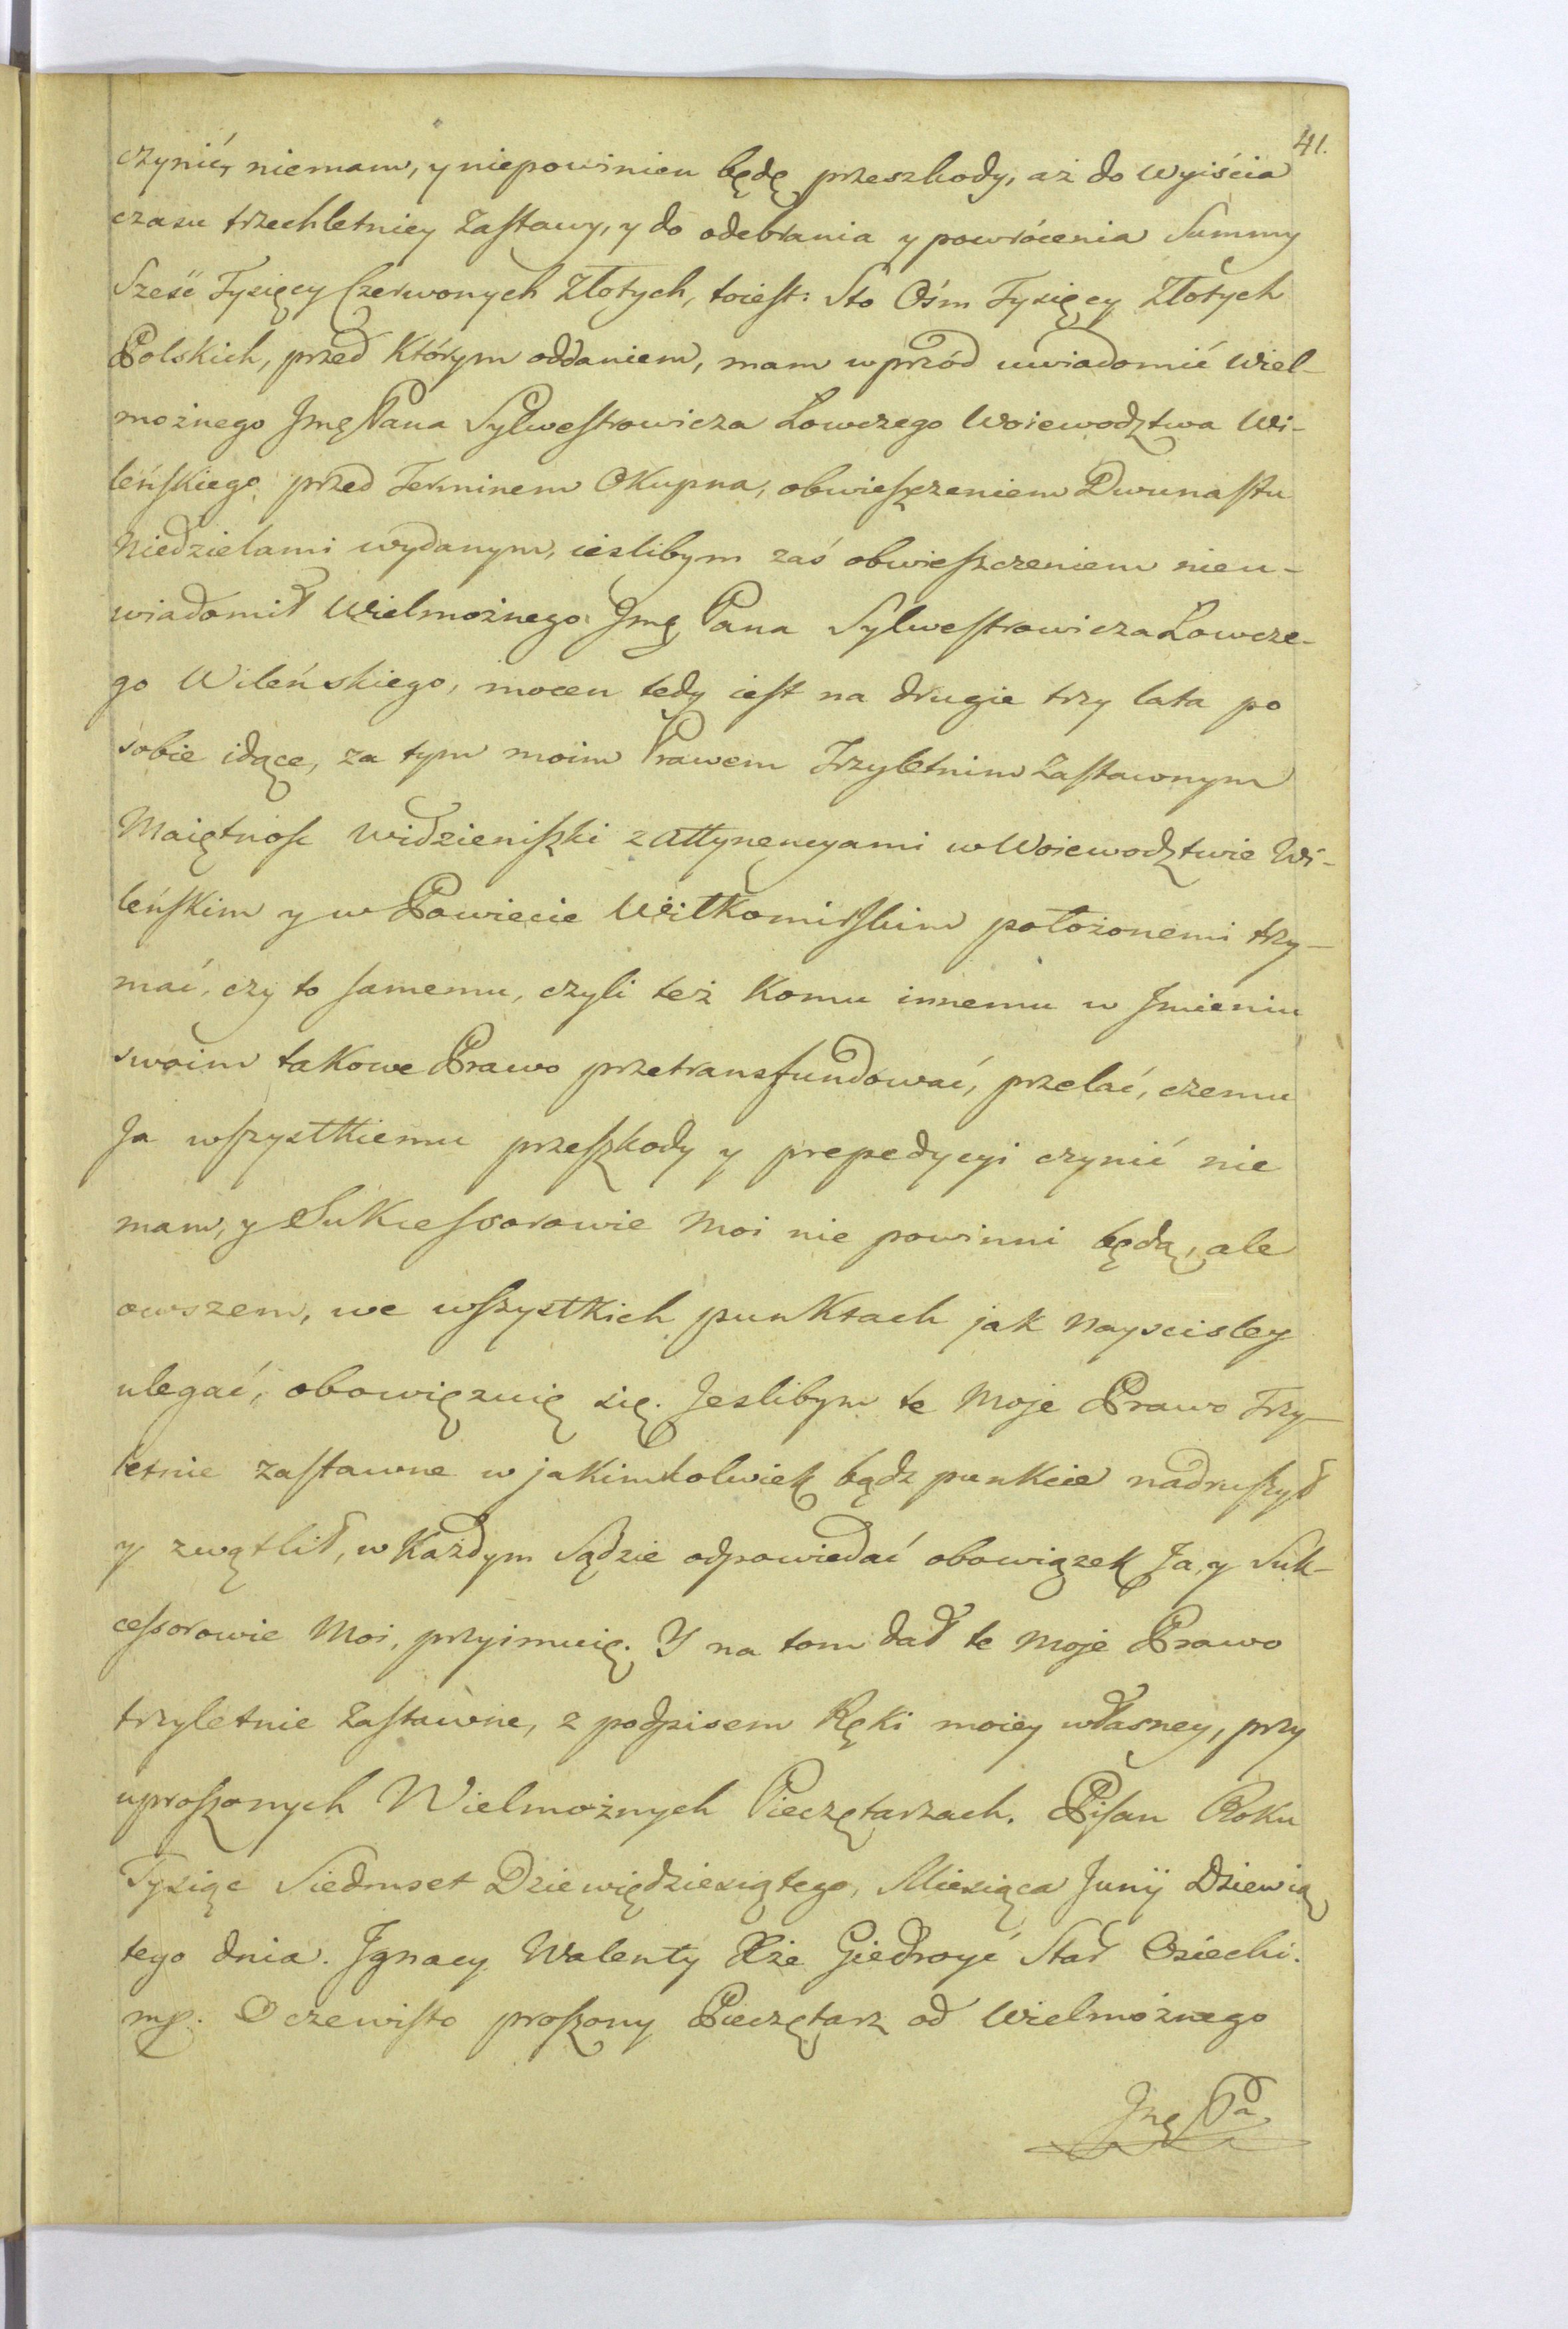 41.
czynić, niemam, y niepowinien będę przeszkody, aż do wyiścia
czasu trzechletniey Zastawy, y do odebrania y powrócenia Summy
Sześć Tysięcy Czerwonych Złotych, toiest: Sto Ośm Tysięcy Złotych
Polskich, przed którym oddaniem, mam wprzód uwiadomić Wiel-
możnego Jmę Pana Sylwestrowicza Łowczego Woiewodztwa Wi-
leńskiego, przed Terminem Okupna, obwieszczeniem Dwunastu
Niedzielami wydanym, ieslibym zaś obwieszczeniem nieu-
wiadomił Wielmożnego Jmę Pana Sylwestrowicza Łowcze-
go Wileńskiego, mocen tedy iest na drugie trzy lata po
sobie idące, za tym moim Prawem Trzyletnim Zastawnym
Maiętnosc Widzieniszki z Attynencyami w Woiewodztwie Wi-
leńskim y w Powiecie Wiłkomirskim położonemi trzy-
mać, czy to samemu, czyli też komu innemu w Jmieniu
swoim takowe Prawo przetransfundować, przelać, czemu
Ja wszystkiemu przeszkody y prepedycyi czynić nie
mam, y Sukcessorowie Moi nie powinni będą, ale
owszem, we wszystkich punktach jak nayscisley
ulegać, obowięzuię się. Jeslibym te Moje Prawo Trzy-
letnie zastawne w jakimkolwiek bądz punkcie nadruszył
y zwątlił, w każdym Sądzie odpowiedać obowiązek Ja, y Suk-
cessorowie Moi, przyimuię. Y na tom dał te Moje Prawo
trzyletnie Zastawne, z podpisem Ręki moiey własney, przy
uproszonych Wielmożnych Pieczętarzach. Pisan Roku
Tysiąc Siedmset Dziewiędziesiątego, Miesiąca Junij Dziewią
tego dnia. Jgnacy Walenty Xże Giedroyć Star Osiecki.
mp. Oczewisto proszony Pieczętarz od Wielmożnego
Jmę Pa